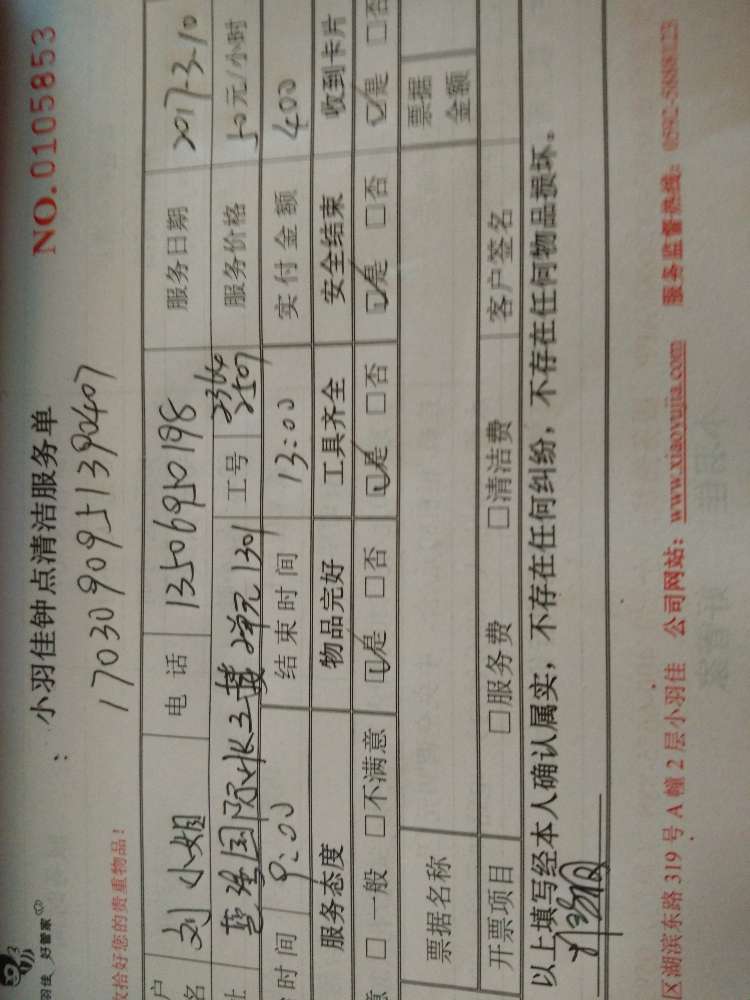 羽佳 好管家
小羽佳钟点清洁服务单
NO.0105853
1703090951390407
收拾好您的贵重物品!
刘小姐 电话 13506950198 服务日期 2017-3-10
国际 2单元1301 工号 2364 2507 服务价格 50元/小时
时间 9:00 结束时间 13:00 实付金额 400
服务态度 物品完好 工具齐全 安全结束 收到卡片
意 □一般 □不满意 ☑是 □否 ☑是 □否 ☑是 □否 ☑是 □否
票据名称 票据金额
开票项目 □服务费 □清洁费 客户签名
以上填写经本人确认属实,不存在任何纠纷,不存在任何物品损坏。
区湖滨东路 319 号 A 幢 2 层小羽佳 公司网站:www.xiaoyujia.com 服务监督热线: